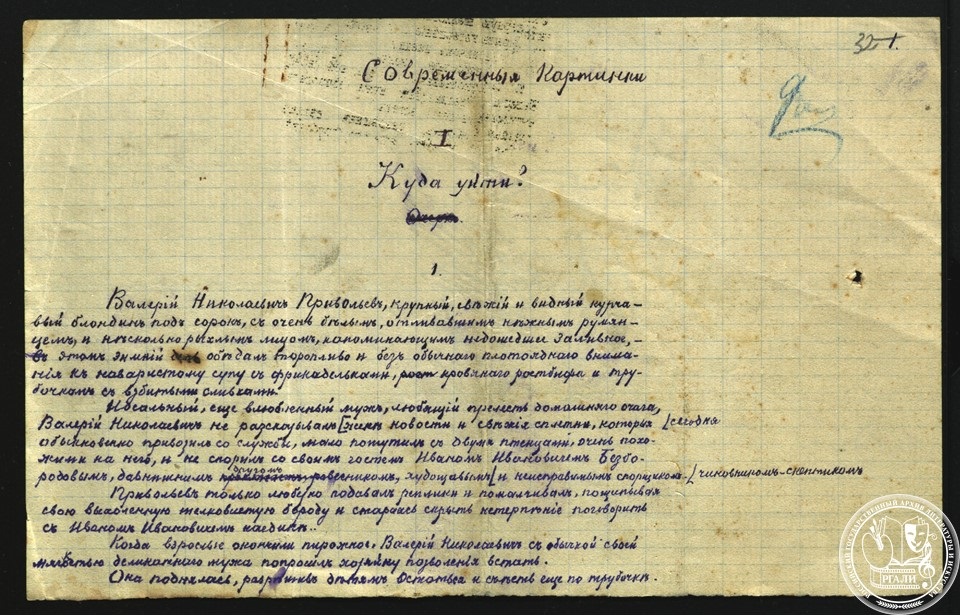 32 1.
Современныя Картинки
I
Куда уйти?
1.
Валерій Николаевичъ Привольевъ, крупный, свѣжій и видный курча-
вый блондинъ подъ сорокъ, съ очень бѣлымъ, отливавшимъ нѣжнымъ румян-
цемъ, и нѣсколько рыхлымъ лицомъ, напоминающимъ недошедшее заливное, –
въ этотъ зимній день обѣдалъ торопливо и безъ обычнаго плотояднаго внима-
нія къ наваристому супу съ фрикадельками, кровяного ростбифа и тру-
бочкамъ съ взбитыми сливками.
Идеальный, еще влюбленный мужъ, любящій прелесть домашняго очага,
Валерій Николаевичъ не разсказывалъ женѣ новости и свѣжія сплетни, которыя сегодня
обыкновенно привозилъ со службы, мало шутилъ съ двумя птенцами, очень похо-
жими на него, и не спорилъ со своимъ гостемъ Иваномъ Ивановичемъ Безбо-
родовымъ, давнишнимъ другомъ ровесникомъ, худощавымъ и неисправимымъ спорщикомъ. чиновникомъ-скептикомъ
Привольевъ только любезно подавалъ реплики и помалчивалъ, пощипывая
свою выхоленную шелковистую бороду и стараясь скрыть нетерпѣніе поговорить
съ Иваномъ Ивановичемъ наединѣ..
Когда взрослые окончили пирожное, Валерій Николаевичъ съ обычной своей
мягкостью деликатнаго мужа попросилъ хозяйку позволенія встать.
Она поднялась, разрѣшивъ дѣтямъ остаться и съѣсть еще по трубочкѣ.
РОССИЙСКИЙ ГОСУДАРСТВЕННЫЙ АРХИВ ЛИТЕРАТУРЫ И ИСКУССТВА
РГАЛИ